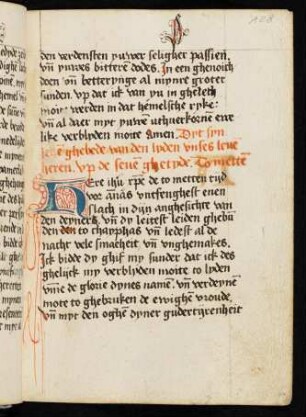 128
den verdensten yuwer seligher passien
vn̄ yuwes bittere dodes. In een ghenoich
doen vn̄ betterynge al mynre groter
sunden. vp dat ick van yu in ghelech
mote werden in dat hemelsche ryke:
vn̄ al daer myt yuwē utuerkornē ewe
like verblyden moite Amen. Dyt syn
ghebede van den lyden vnses leuē
heren. vp de seuē ghetyde. To mettē
Here ihū xp̄e de to metten tijd
voer annas vntfenghest enen
slach in dijn anghesichte van
den deyneren. vn̄ dy leitest leiden ghebū
den to chayphas vn̄ ledest al de
nacht vele smaeheit vn̄ vnghemakes.
Ick bidde dy ghif my sunder dat ick des
ghelijck my verblyden moite to lyden
vm̄e de glorie dynes namē. vn̄ verdeynē
mote to ghebruken de ewighē vroude.
vn̄ myt den oghē dyner gudertyrenheit